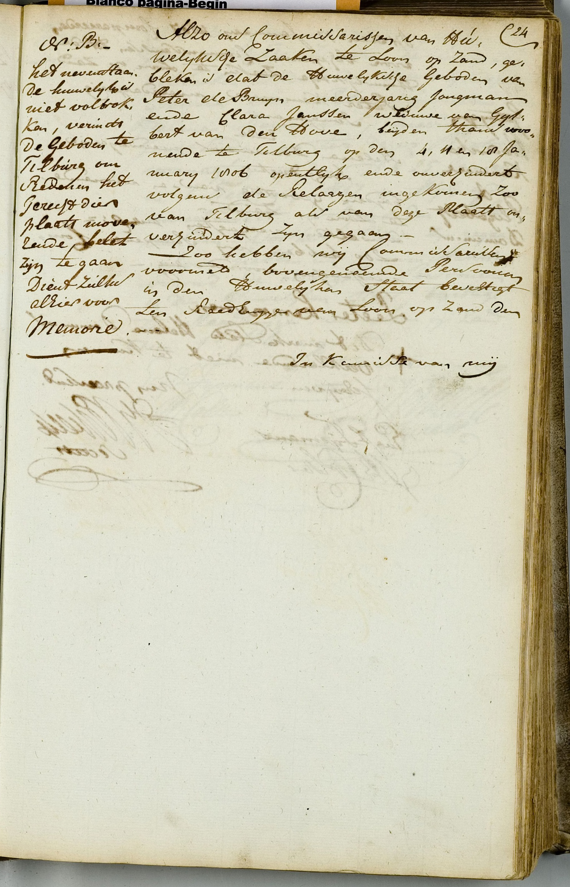 Blanco pagina-Begin
(24
N. B.
het nevenstaan
de huwelyk is
niet voltrok
ken, verinds
de Geboden te
Tilburg om
Redenen het
Gerecht dier
plaats move
rende, belet
zijn te gaan
Dient zulks
alhier voor
Memorie.
Alzo ons Commissarissen van Hú-
welijksse Zaaken te Loon op Zand, ge-
bleken is dat de Huwelijkse Geboden van
Peter de Bruyn meerderjarig Jongman
ende Clara Janssen weduwe van Gys-
bert van den Hove, beyden thans woo-
nende te Tilburg op den 4, 11 en 18 Ja-
nuary 1806 opentlyk ende onverhindert
volgens de Relaazen ingekomen Zoo
van Tilburg als van deze Plaats on-
verhindert zyn gegaan —
Zoo hebben wij Commissarissen
voormet bovengenoemde Persoonen
in den Huwelyken Staat bevestigt
Ten Raedhuyze van Loon op Zand den
In Kennisse van mij